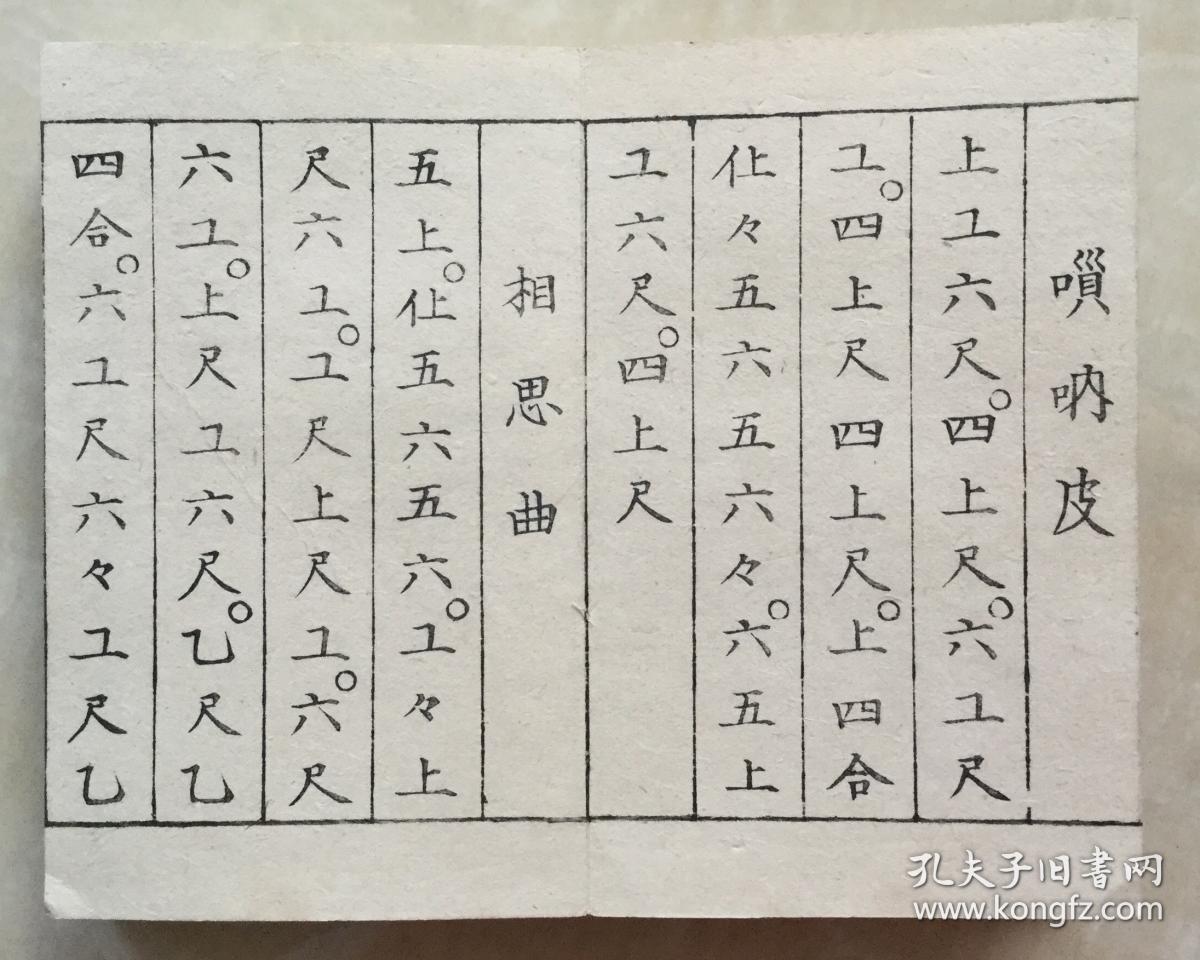 嗩呐皮
上工六尺。四上尺。六工尺
工。四上尺四上尺。上四合
仩々五六五六々。六五上
工六尺。四上尺
相思曲
五上。仩五六五六。工々上
尺六工。工尺上尺工。六尺
六工。上尺工六尺。乙尺乙
四合。六工尺六々工尺乙
孔夫子旧书网
www.kongfz.com